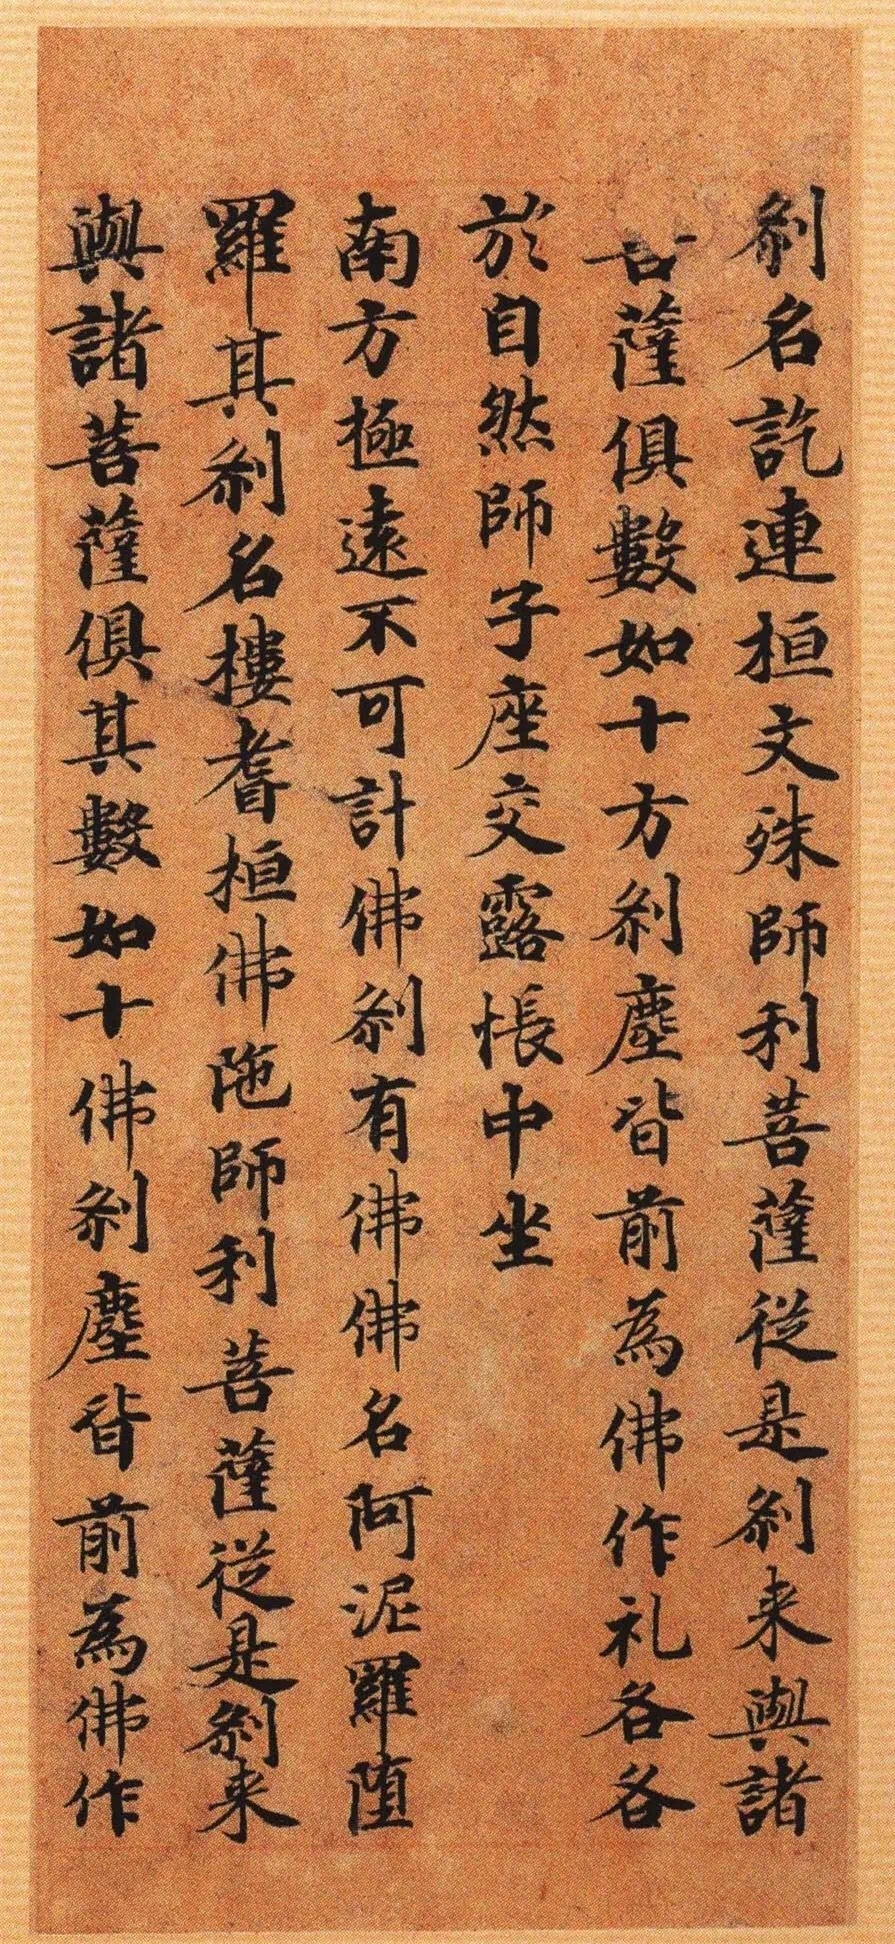 刹名訖連桓文殊師利菩薩從是刹来與諸
菩薩俱數如十方刹塵皆前為佛作礼各各
於自然師子座交露帳中坐
南方極遠不可計佛刹有佛佛名阿泥羅堕
羅其刹名樓耆桓佛陁師利菩薩從是刹来
與諸菩薩俱其數如十佛刹塵皆前為佛作